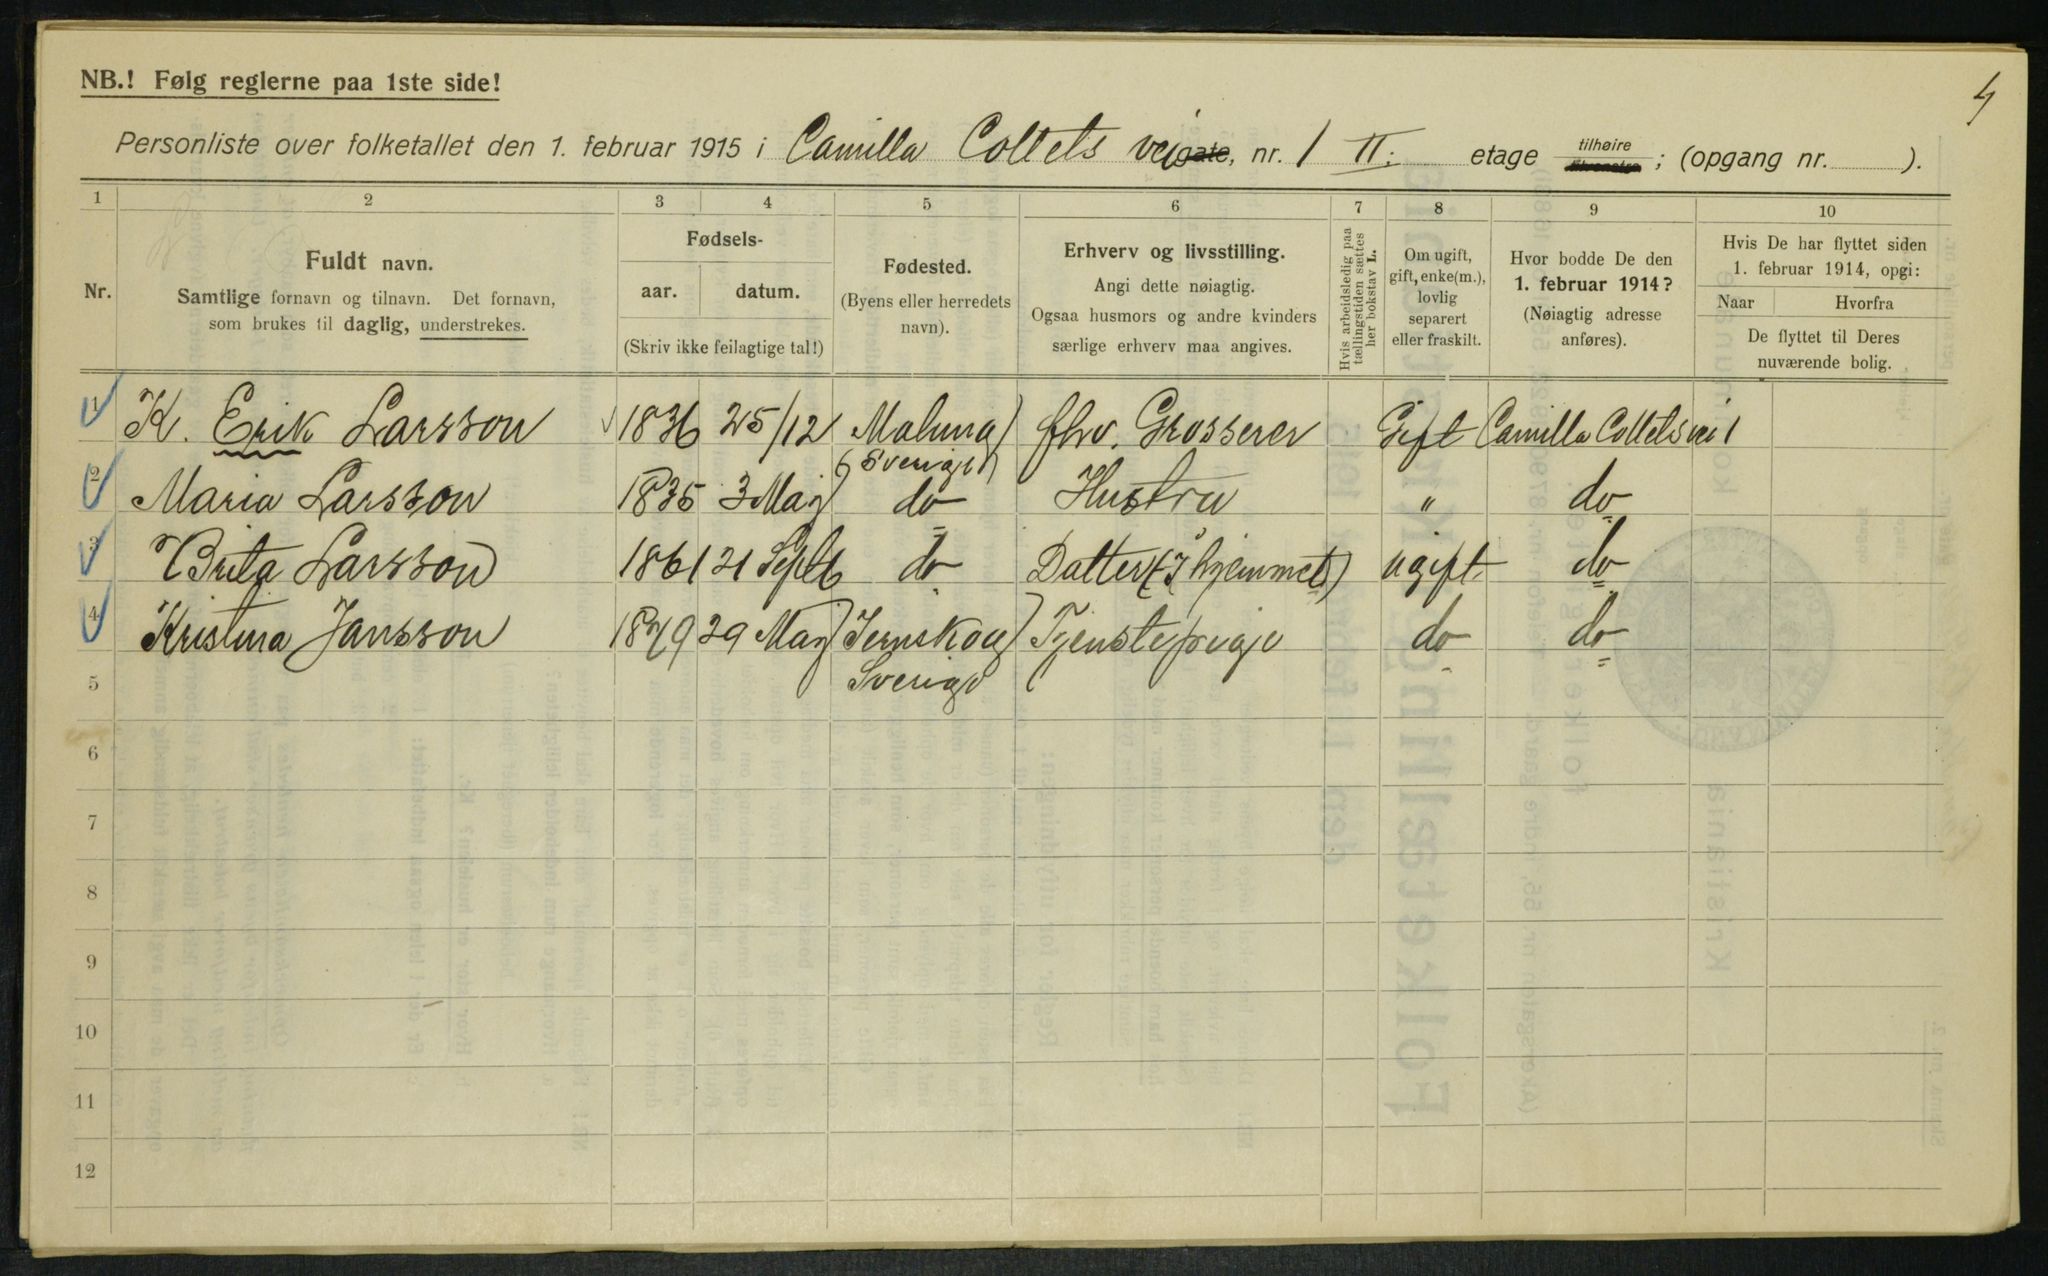 4
NB.! Følg reglerne paa 1ste side!
Personliste over folketallet den 1. februar 1915 i Camilla Colletts vei gate, nr. 1 II. etage tilhøire tilvenstre; (opgang nr. ).
1 2 3 4 5 6 7 8 9 10
Nr.
Fuldt navn.
Samtlige fornavn og tilnavn. Det fornavn,
som brukes til daglig, understrekes.
Fødsels-
aar. datum.
(Skriv ikke feilagtige tal!)
Fødested.
(Byens eller herredets
navn).
Erhverv og livsstilling.
Angi dette nøiagtig.
Ogsaa husmors og andre kvinders
særlige erhverv maa angives.
Hvis arbeidsledig paa
tællingstiden sættes
her bokstav L.
Om ugift,
gift, enke(m.),
lovlig
separert
eller fraskilt.
Hvor bodde De den
1. februar 1914?
(Nøiagtig adresse
anføres).
Hvis De har flyttet siden
1. februar 1914, opgi:
Naar Hvorfra
De flyttet til Deres
nuværende bolig.
1 K. Erik Larsson 1836 25/12 Malung fhv. Grosserer Gift Camilla Colletts vei 1
(Sverige)
2 Maria Larsson 1835 3 Maj do Hustru " do
3 Brita Larsson 1861 21 Sept do Datter (I hjemmet) ugift. do
4 Kristina Jansson 29 Maj Jernskog Tjenstepige do do
5 Sverige
6
7
8
9
10
11
12